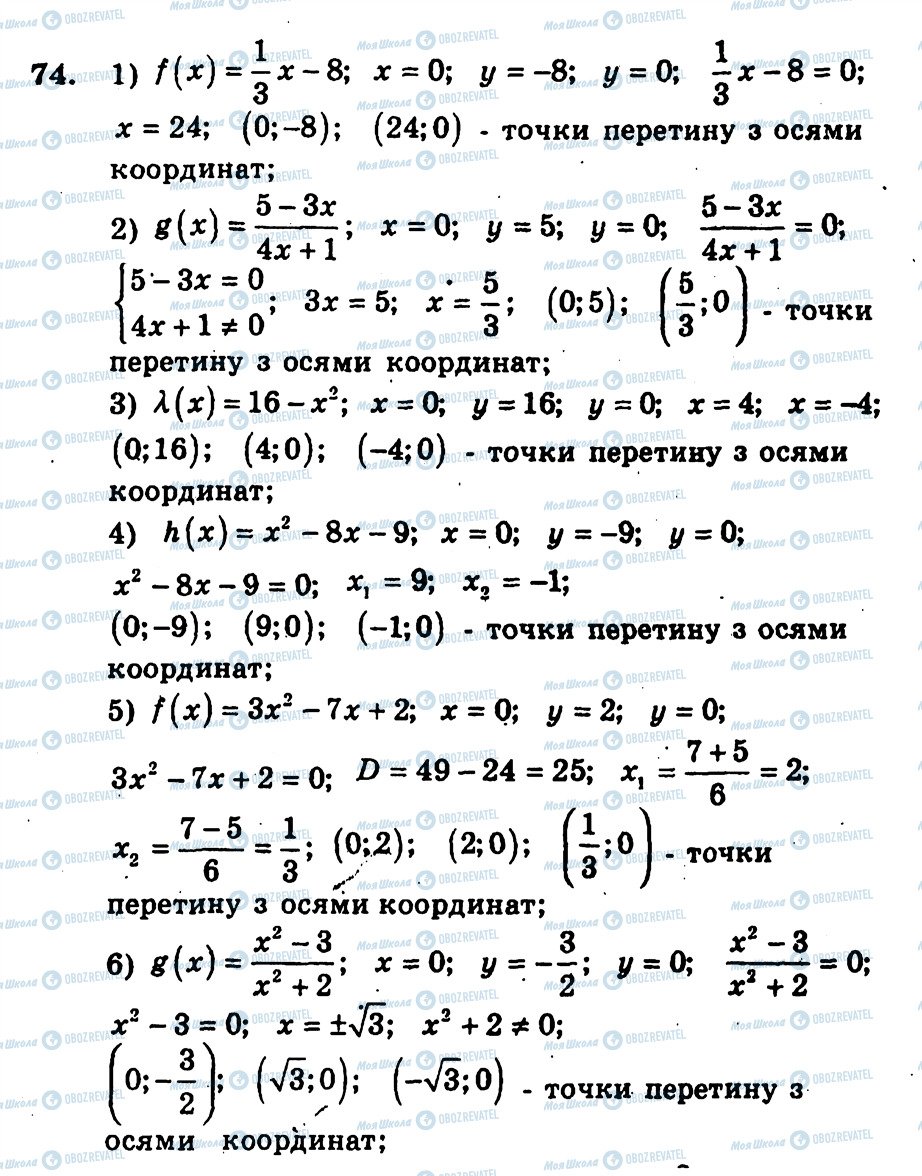 74. 1) f(x) = 1/3 x − 8; x = 0; y = −8; y = 0; 1/3 x − 8 = 0;
x = 24; (0;−8); (24;0) - точки перетину з осями
координат;
2) g(x) = (5 − 3x)/(4x + 1); x = 0; y = 5; y = 0; (5 − 3x)/(4x + 1) = 0;
{5 − 3x = 0, 4x + 1 ≠ 0; 3x = 5; x = 5/3; (0;5); (5/3;0) - точки
перетину з осями координат;
3) λ(x) = 16 − x²; x = 0; y = 16; y = 0; x = 4; x = −4;
(0;16); (4;0); (−4;0) - точки перетину з осями
координат;
4) h(x) = x² − 8x − 9; x = 0; y = −9; y = 0;
x² − 8x − 9 = 0; x₁ = 9; x₂ = −1;
(0;−9); (9;0); (−1;0) - точки перетину з осями
координат;
5) f(x) = 3x² − 7x + 2; x = 0; y = 2; y = 0;
3x² − 7x + 2 = 0; D = 49 − 24 = 25; x₁ = (7 + 5)/6 = 2;
x₂ = (7 − 5)/6 = 1/3; (0;2); (2;0); (1/3;0) - точки
перетину з осями координат;
6) g(x) = (x² − 3)/(x² + 2); x = 0; y = −3/2; y = 0; (x² − 3)/(x² + 2) = 0;
x² − 3 = 0; x = ±√3; x² + 2 ≠ 0;
(0;−3/2); (√3;0); (−√3;0) - точки перетину з
осями координат;